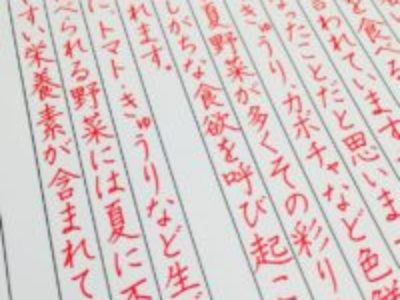 を食べる
言われています
なったことだと思いま
きゅうり、カボチャなど色鮮
夏野菜が多くその彩り
しがちな食欲を呼び起こ
れます。
にトマト・きゅうりなど生で
べられる野菜には夏に不
すい栄養素が含まれて